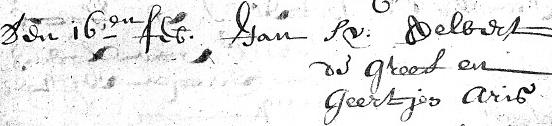 Den 16en feb. Jan sv: Delbert
de Greef en
Geertjen Aris